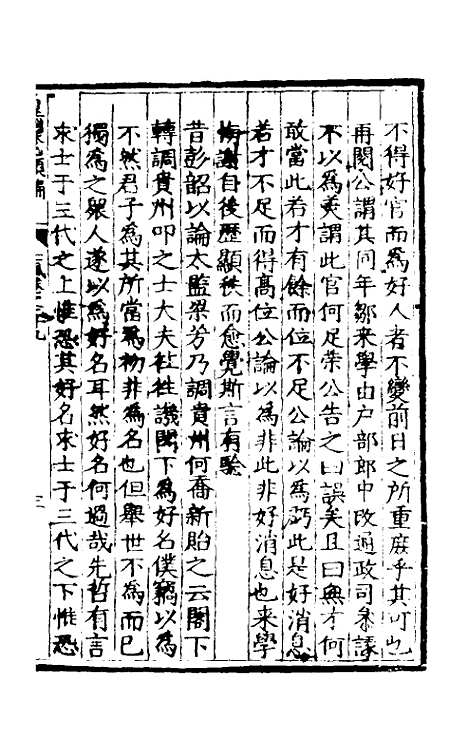 不得好官而為好人者不變前日之所重庶乎其可也
再閱公謂其同年鄒來學由户部郎中改通政司叅議
不以為美謂此官何足榮公告之曰誤矣且曰無才何
敢當此若才有餘而位不足公論以為弼此是好消息
若才不足而得髙位公論以為非此非好消息也来學
悔謝自後歷顯秩而愈覺斯言有驗
昔彭韶以論太監梁芳乃調貴州何喬新貽之云閣下
轉調貴州叩之士大夫徃徃譏閣下為好名僕竊以為
不然君子為其所當為初非為名也但舉世不為而己
獨為之衆人遂以為好名耳然好名何過哉先哲有言
求士于三代之上惟恐其好名求士于三代之下惟恐